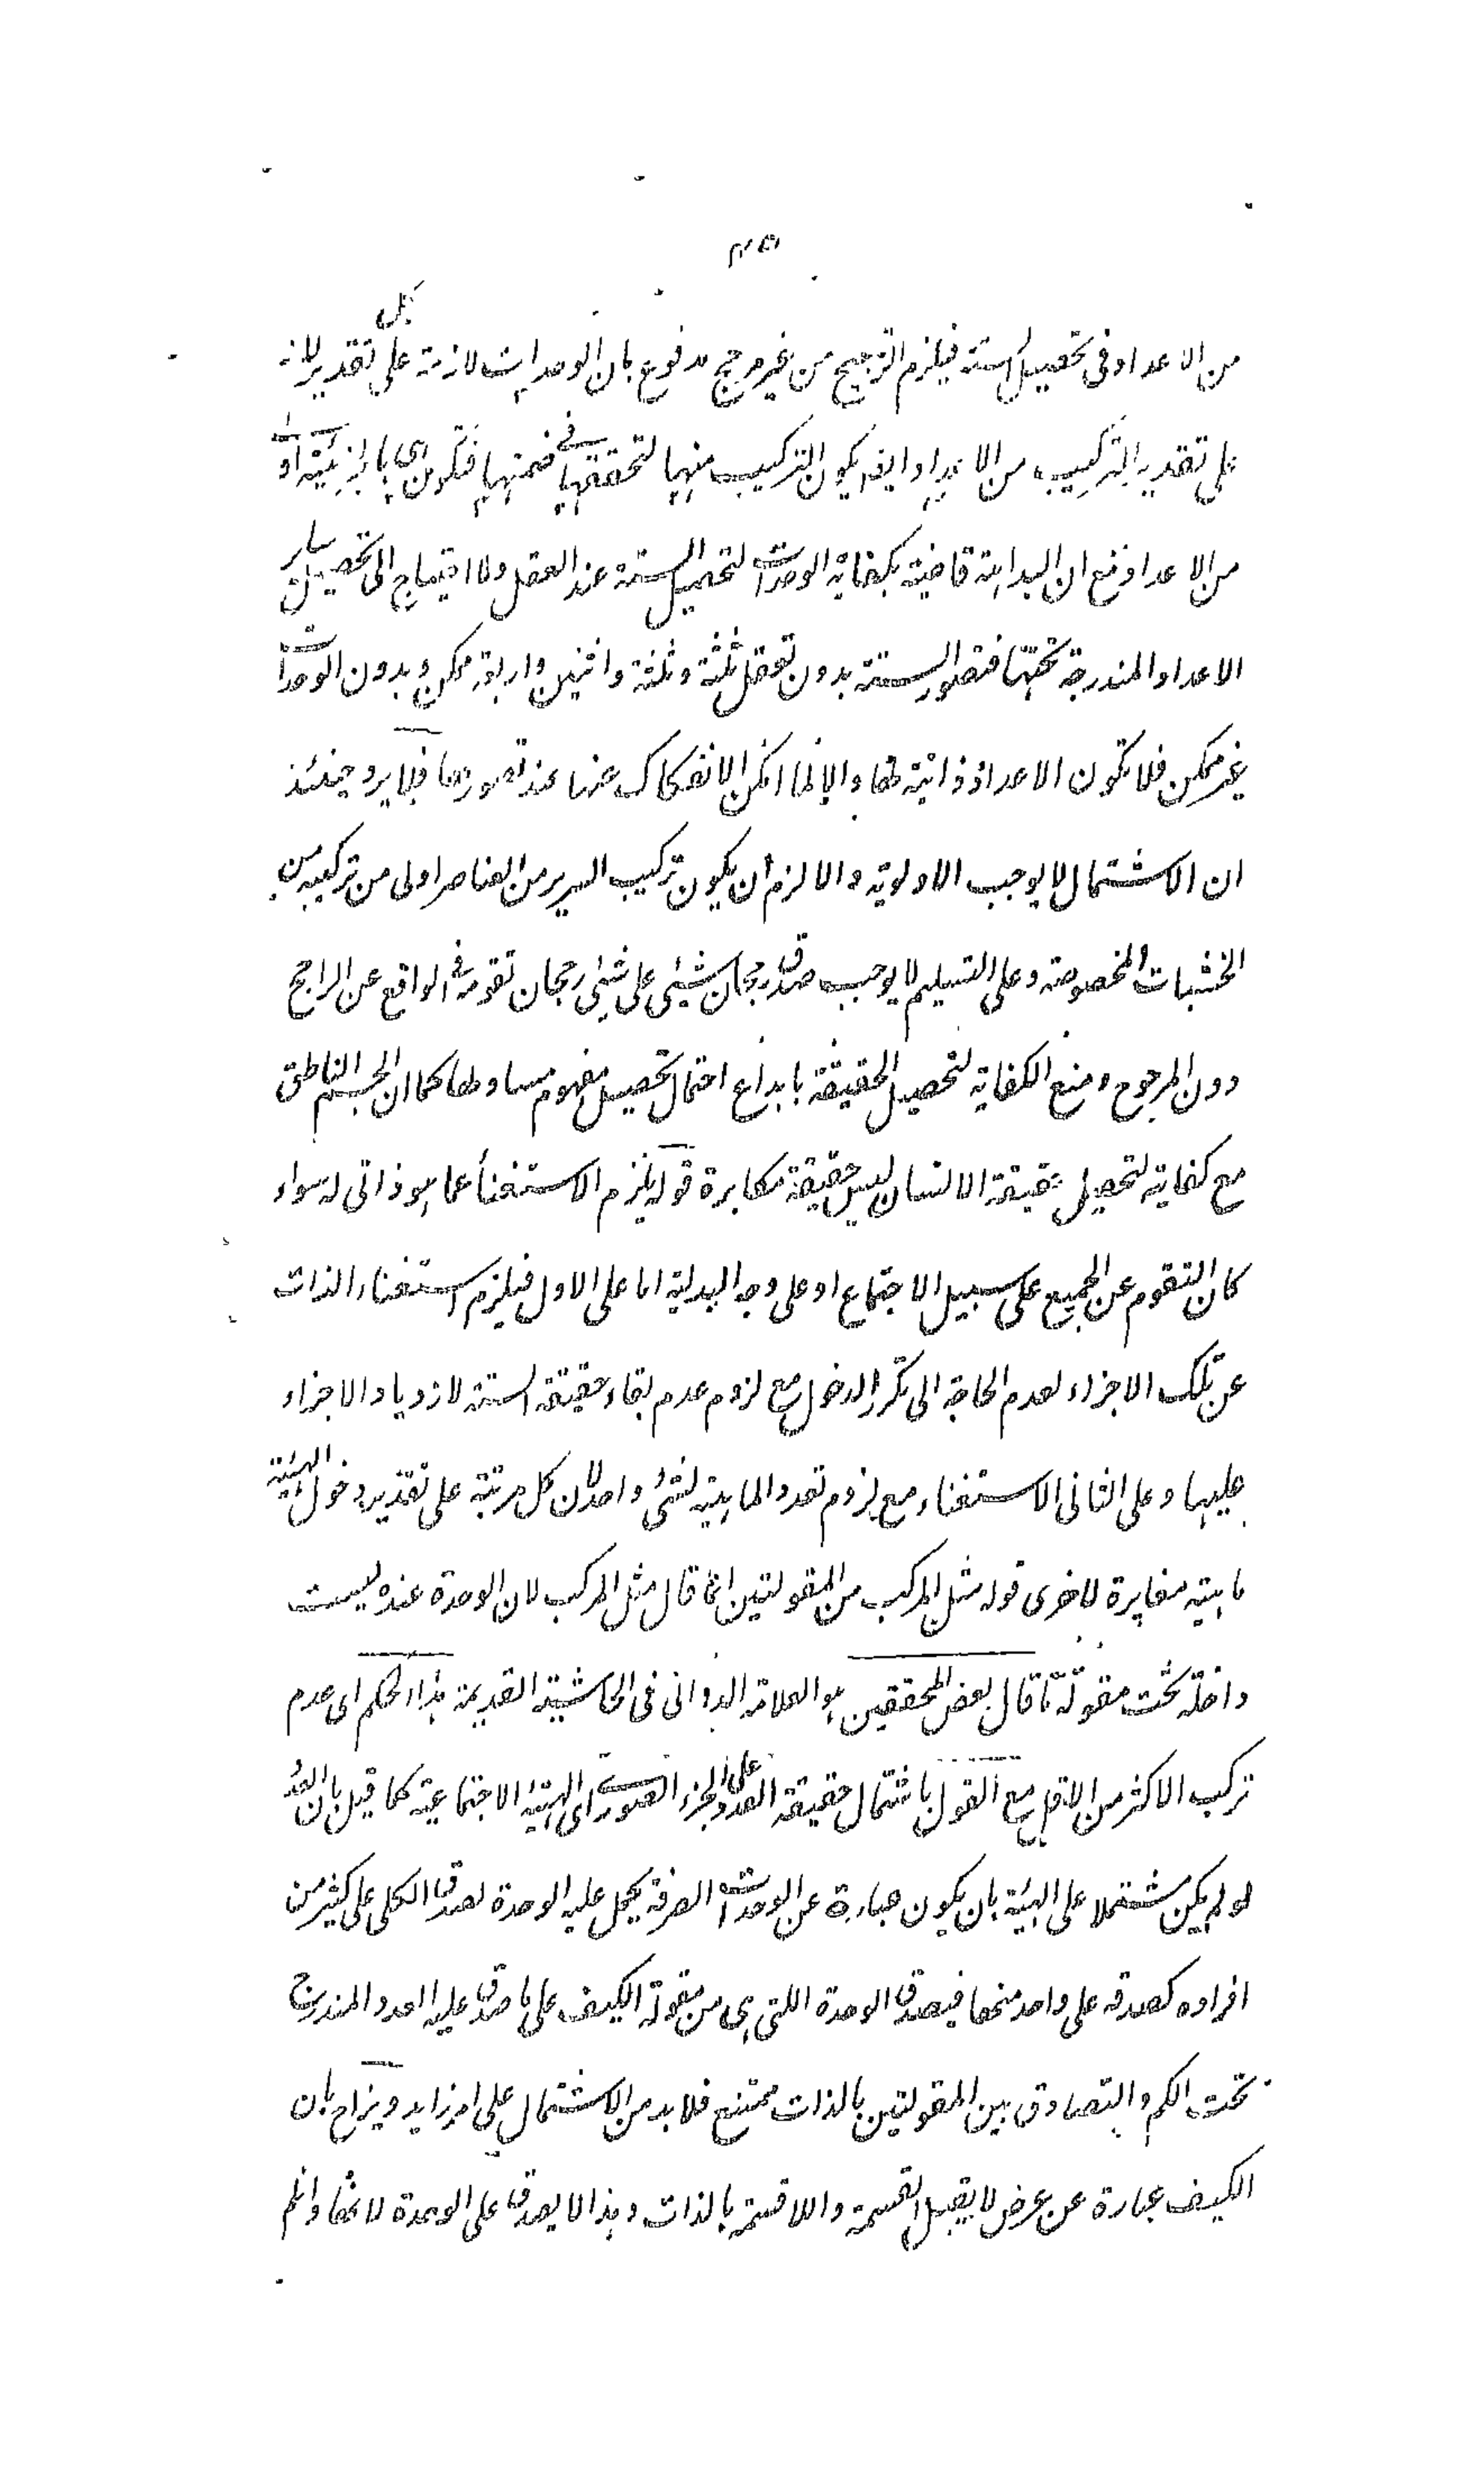 ٣٥
من الاعداد فى تحصيل الستة فيلزم الترجيح من غير مرجح مدفوع بان الوحدات لازمة على كل تقدير لانه
على تقدير التركيب من الاعداد ايضا يكون التركيب منها لتحققها فى ضمنها فتكون هى بالجزئية اولى
من الاعداد فمع ان البداهة قاضية بكفاية الوحدات لتحصيل الستة عند العقل ولا احتياج الى تحصيل ساير
الاعداد المندرجة تحتها فتصور الستة بدون تعقل ثلثة وثلثة واثنين واربعة ممكن وبدون الوحدات
غير ممكن فلا تكون الاعداد ذاتية لها والا لما امكن الانفكاك عنها عند تصورها فلا يرد حينئذ
ان الاشتمال لا يوجب الاولوية والا لزم ان يكون تركيب السرير من العناصر اولى من تركيبه من
الخشبات المخصوصة وعلى التسليم لا يوجب صدق رجحان شيئى على شيئى رجحان تقومه فى الواقع عن الراجح
دون المرجوح ومنع الكفاية لتحصيل الحقيقة بابداع احتمال تحصيل مفهوم مساو لها كما ان الجسم الناطق
مع كفايته لتحصيل حقيقة الانسان ليس حقيقة مكابرة قوله يلزم الاستغناء عما هو ذاتى له سواء
كان التقوم عن الجميع على سبيل الاجتماع او على وجه البدلية اما على الاول فيلزم استغناء الذات
عن تلك الاجزاء لعدم الحاجة الى تكرر الدخول مع لزوم عدم بقاء حقيقة الستة لازدياد الاجزاء
عليها وعلى الثانى الاستغناء مع لزوم تعدد الماهية لشئ واحد لان كل مرتبة على تقدير دخول الهيئة
ماهية مغايرة لاخرى قوله مثل المركب من المقولتين انما قال مثل المركب لان الوحدة عنده ليست
داخلة تحت مقولة ما قال بعض المحققين هو العلامة الدوانى فى الحاشية القديمة هذا الحكم اى عدم
تركب الاكثر من الاقل مع القول باشتمال حقيقة العدد على الجزء الصورى اى الهيئة الاجتماعية كما قيل بان العدد
لو لم يكن مشتملا على الهيئة بان يكون عبارة عن الوحدات الصرفة يحمل عليه الوحدة لصدق الكلى على كثير من
افراده كصدقه على واحد منها فيصدق الوحدة اللتى هى من مقولة الكيف على ما صدق عليه العدد المندرج
تحت الكم والتصادق بين المقولتين بالذات ممتنع فلا بد من الاشتمال على امر زايد ويزاح بان
الكيف عبارة عن عرض لا يقبل القسمة واللاقسمة بالذات وهذا لا يصدق على الوحدة لانها وان لم